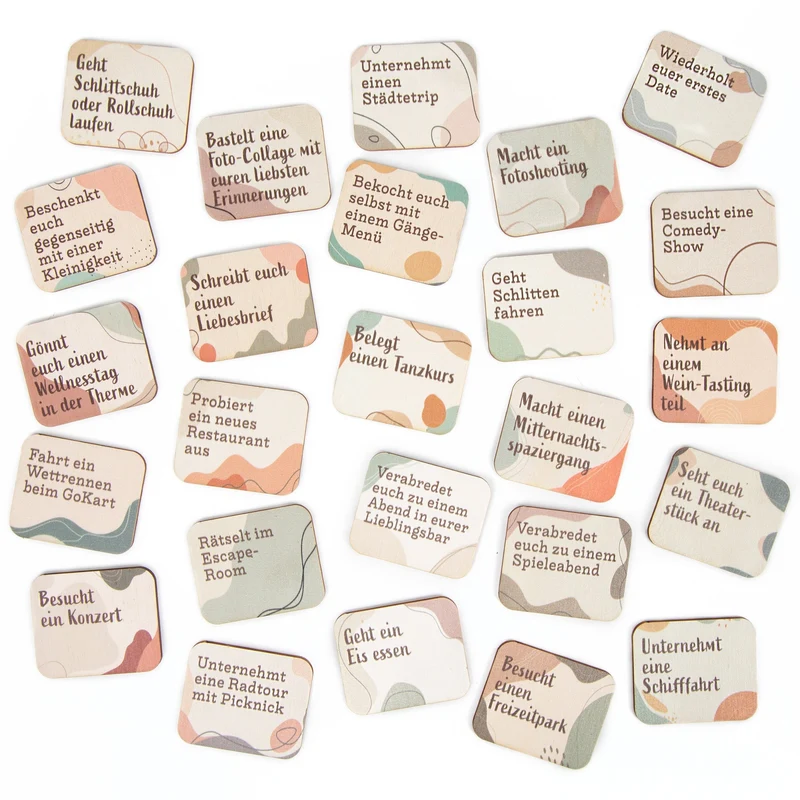 Geht
Schlittschuh
oder Rollschuh
laufen
Unternehmt
einen
Städtetrip
Wiederholt
euer erstes
Date
Bastelt eine
Foto-Collage mit
euren liebsten
Erinnerungen
Macht ein
Fotoshooting
Beschenkt
euch
gegenseitig
mit einer
Kleinigkeit
Bekocht euch
selbst mit
einem Gänge-
Menü
Besucht eine
Comedy-
Show
Schreibt euch
einen
Liebesbrief
Geht
Schlitten
fahren
Gönnt
euch einen
Wellnesstag
in der Therme
Belegt
einen Tanzkurs
Nehmt an
einem
Wein-Tasting
teil
Probiert
ein neues
Restaurant
aus
Macht einen
Mitternachts-
spaziergang
Fahrt ein
Wettrennen
beim GoKart
Verabredet
euch zu einem
Abend in eurer
Lieblingsbar
Seht euch
ein Theater-
stück an
Rätselt im
Escape-
Room
Verabredet
euch zu einem
Spieleabend
Besucht
ein Konzert
Geht ein
Eis essen
Unternehmt
eine Radtour
mit Picknick
Besucht
einen
Freizeitpark
Unternehmt
eine
Schifffahrt